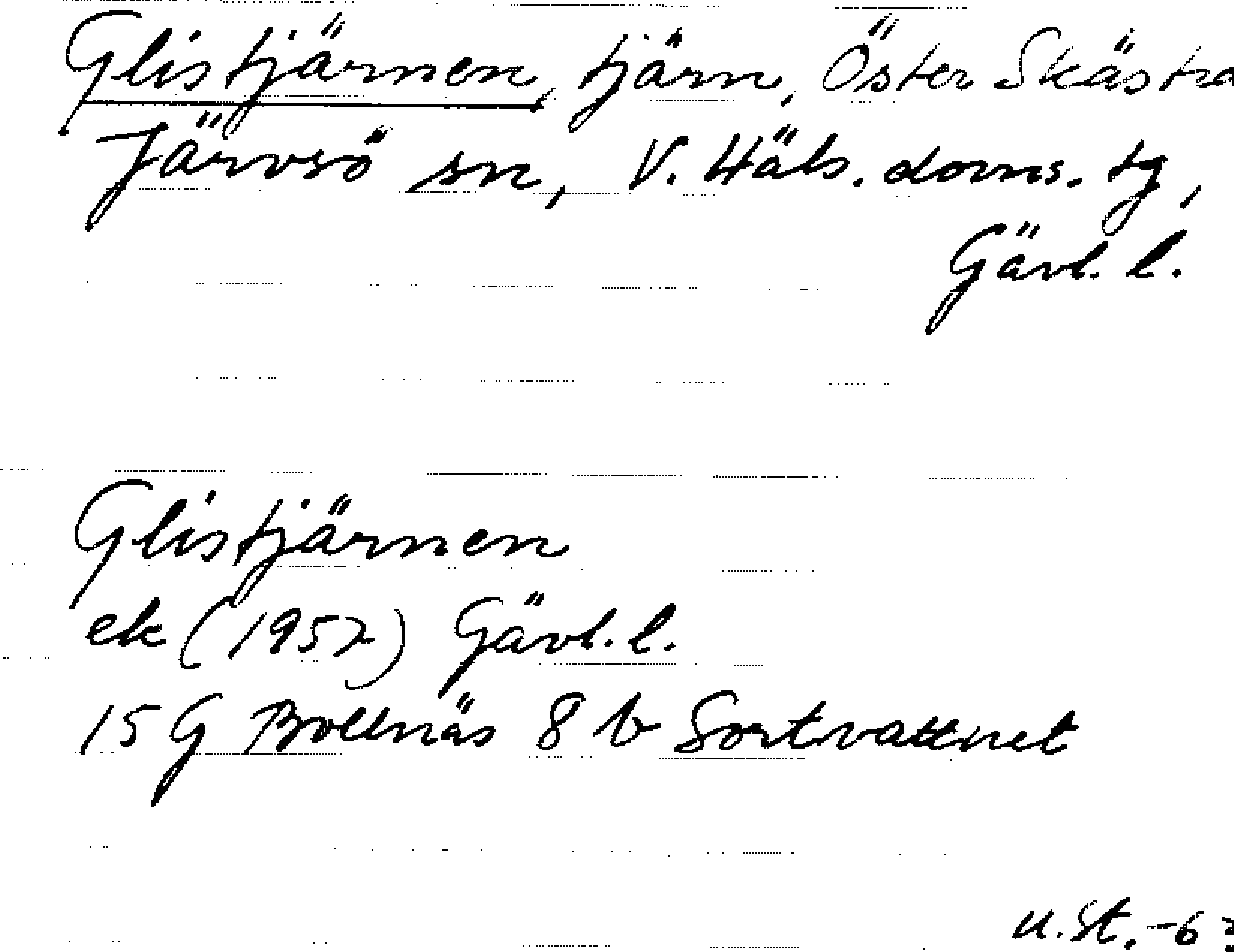 Glistjärnen, tjärn, Öster Skästra
Järvsö sn, V. Häls. doms. tg,
Gävl. l.
Glistjärnen
ek (1957) Gävl. l.
15 G Bollnäs 8 b Sortvattnet
U. St. -63